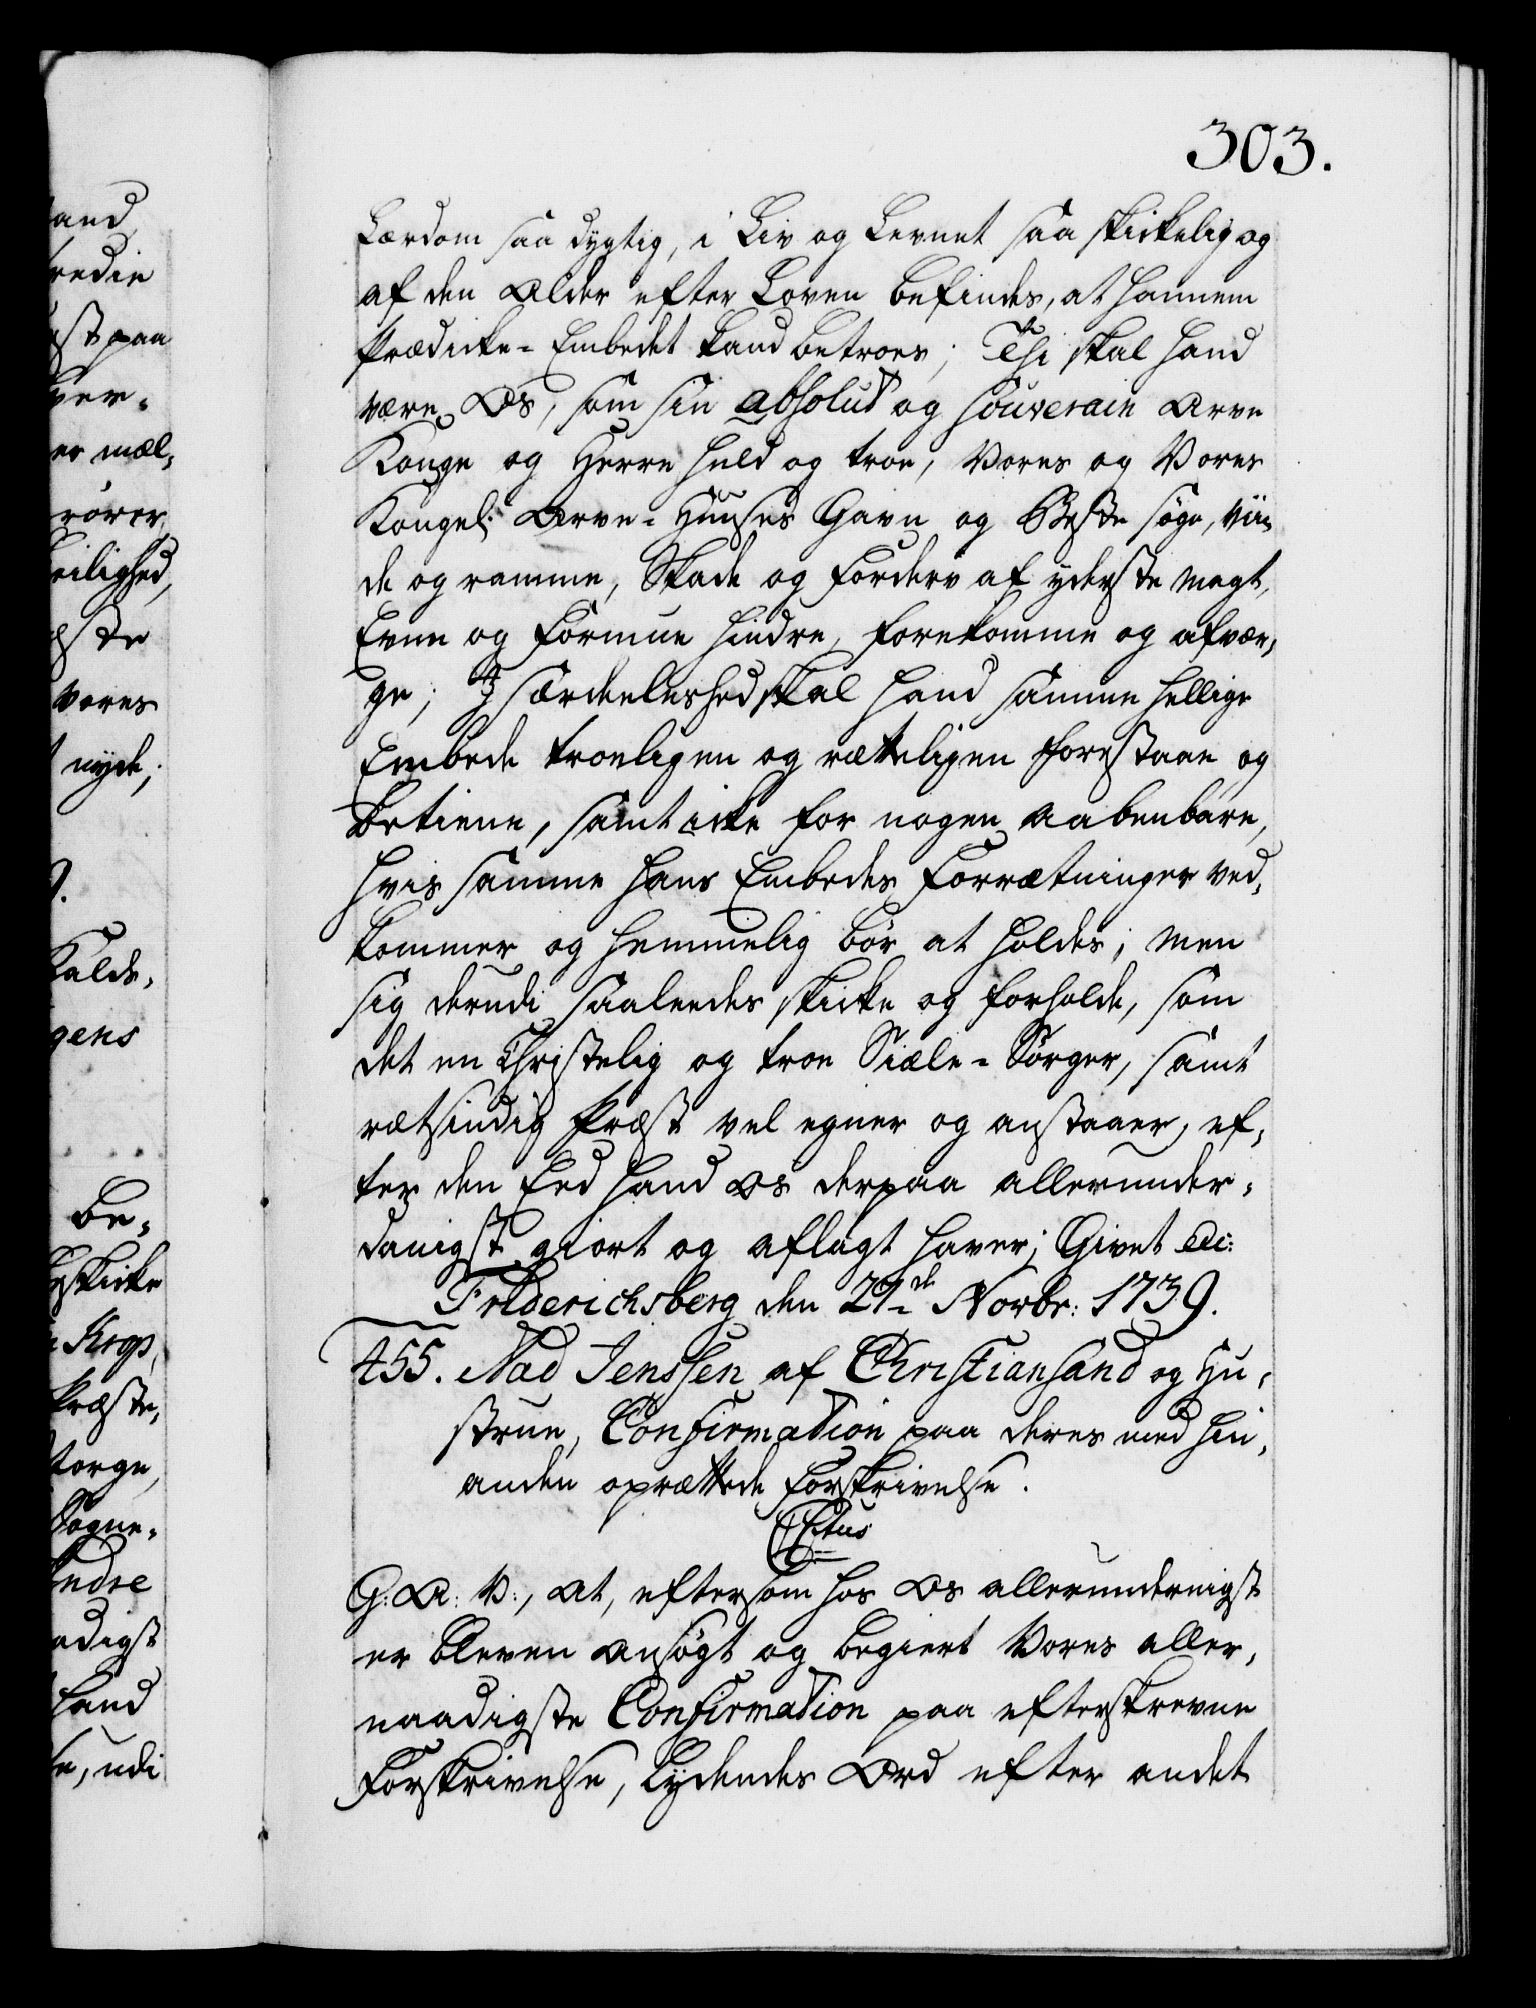 303.
Lærdom saa dygtig, i Liv og Levnet saa skickelig og
af den Alder efter Loven befindes, at hannem
Prædicke-Embedet kand betroes; Thi skal hand
være Os, som sin absolut og souverain Arve
Konge og Herre huld og troe, Vores og Vores
Kongel: Arve-Huuses Gavn og Beste søge, vii-
de og ramme, Skade og Forderv af yderste Magt,
Evne og Formue hindre, forekomme og afvær-
ge; I særdeeleshed skal hand samme hellige
Embede troeligen og rætteligen forestaae og
betiene, samt icke for nogen aabenbare,
hvis samme hans Embedes Forrætninger ved-
kommer og hemmelig bør at holdes; men
sig derudi saaleedes skicke og forholde, som
det en Christelig og troe Siæle-Sørger, samt
rætsindig Præst vel egner og anstaaer, ef-
ter den Eed hand Os derpaa allerunder-
danigst giort og aflagt haver; Givet etc:
Friderichsberg den 27de Novbr: 1739.
455. Aad Jenssen af Christiansand og Hu-
strue, Confirmation paa deres med hin-
anden oprættede Forskrivelse.
CCtus
G: A: V:, at, eftersom hos Os allerundernigst
er bleven ansøgt og begiert Vores aller-
naadigste Confirmation paa efterskrevne
Forskrivelse, lydendes Ord efter andet
and
redie
st paa
ver-
er mæl-
rører
eilighed,
ste
vores
nyde;
9.
Kalds-
gens
be-
skicke
Krop,
Præste,
torge,
Sogne-
ndre
adigst
hand
e, udi